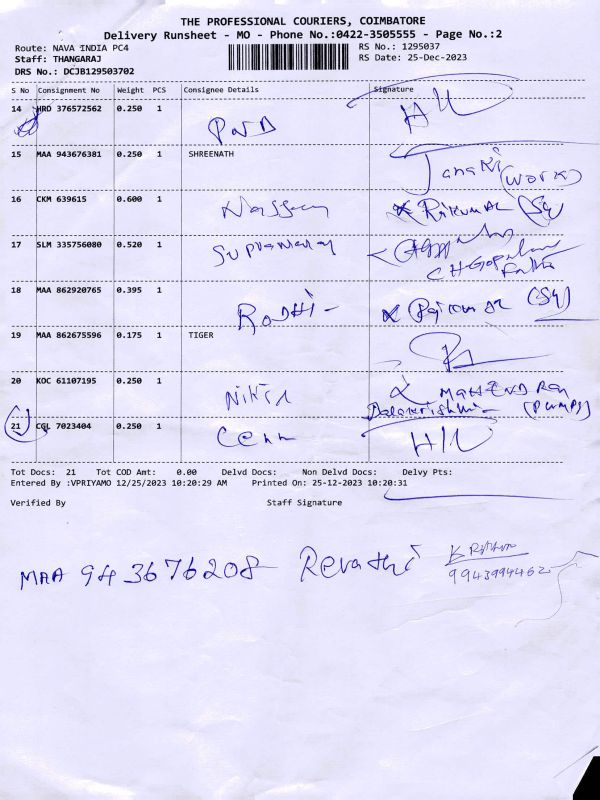 THE PROFESSIONAL COURIERS, COIMBATORE
Delivery Runsheet - MO - Phone No.:0422-3505555 - Page No.:2
Route: NAVA INDIA PC4 RS No.: 1295037
Staff: THANGARAJ RS Date: 25-Dec-2023
DRS No.: DCJB129503702
S No Consignment No Weight PCS Consignee Details Signature
14 HRD 376572562 0.250 1
15 MAA 943676381 0.250 1 SHREENATH Janaki (work)
16 CKM 639615 0.600 1 Rajkumar (Sy)
17 SLM 335756080 0.520 1
CHGopalan
18 MAA 862920765 0.395 1 Rajkumar (Sy)
19 MAA 862675596 0.175 1 TIGER
20 KOC 61107195 0.250 1 MAHENDRAN
(Pumps)
21 CGL 7023404 0.250 1
Tot Docs: 21 Tot COD Amt: 0.00 Delvd Docs: Non Delvd Docs: Delvy Pts:
Entered By :VPRIYAMO 12/25/2023 10:20:29 AM Printed On: 25-12-2023 10:20:31
Verified By Staff Signature
MAA 943676208 Revathi
9943994462